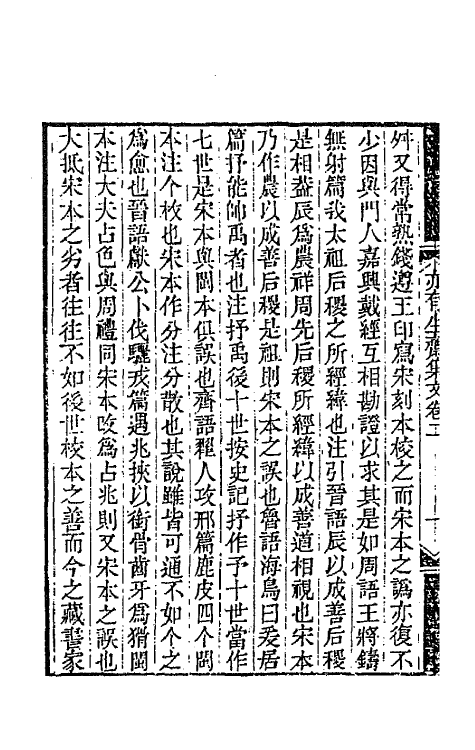 亦有生齋集文卷二
舛又得常熟錢遵王印寫宋刻本校之而宋本之譌亦復不
少因與門人嘉興戴經互相勘證以求其是如周語王將鑄
無射篇我太祖后稷之所經緯也注引晉語辰以成善后稷
是相葢辰爲農祥周先后稷所經緯以成善道相視也宋本
乃作農以成善后稷是祖則宋本之誤也魯語海鳥曰爰居
篇抒能帥禹者也注抒禹後十世按史記抒作予十世當作
七世是宋本與閩本俱誤也齊語翟人攻邢篇鹿皮四个閩
本注个枚也宋本作分注分散也其說雖皆可通不如个之
爲愈也晉語獻公卜伐驪戎篇遇兆挾以銜骨齒牙爲猾閩
本注大夫占色與周禮同宋本改爲占兆則又宋本之誤也
大抵宋本之劣者往往不如後世校本之善而今之藏書家